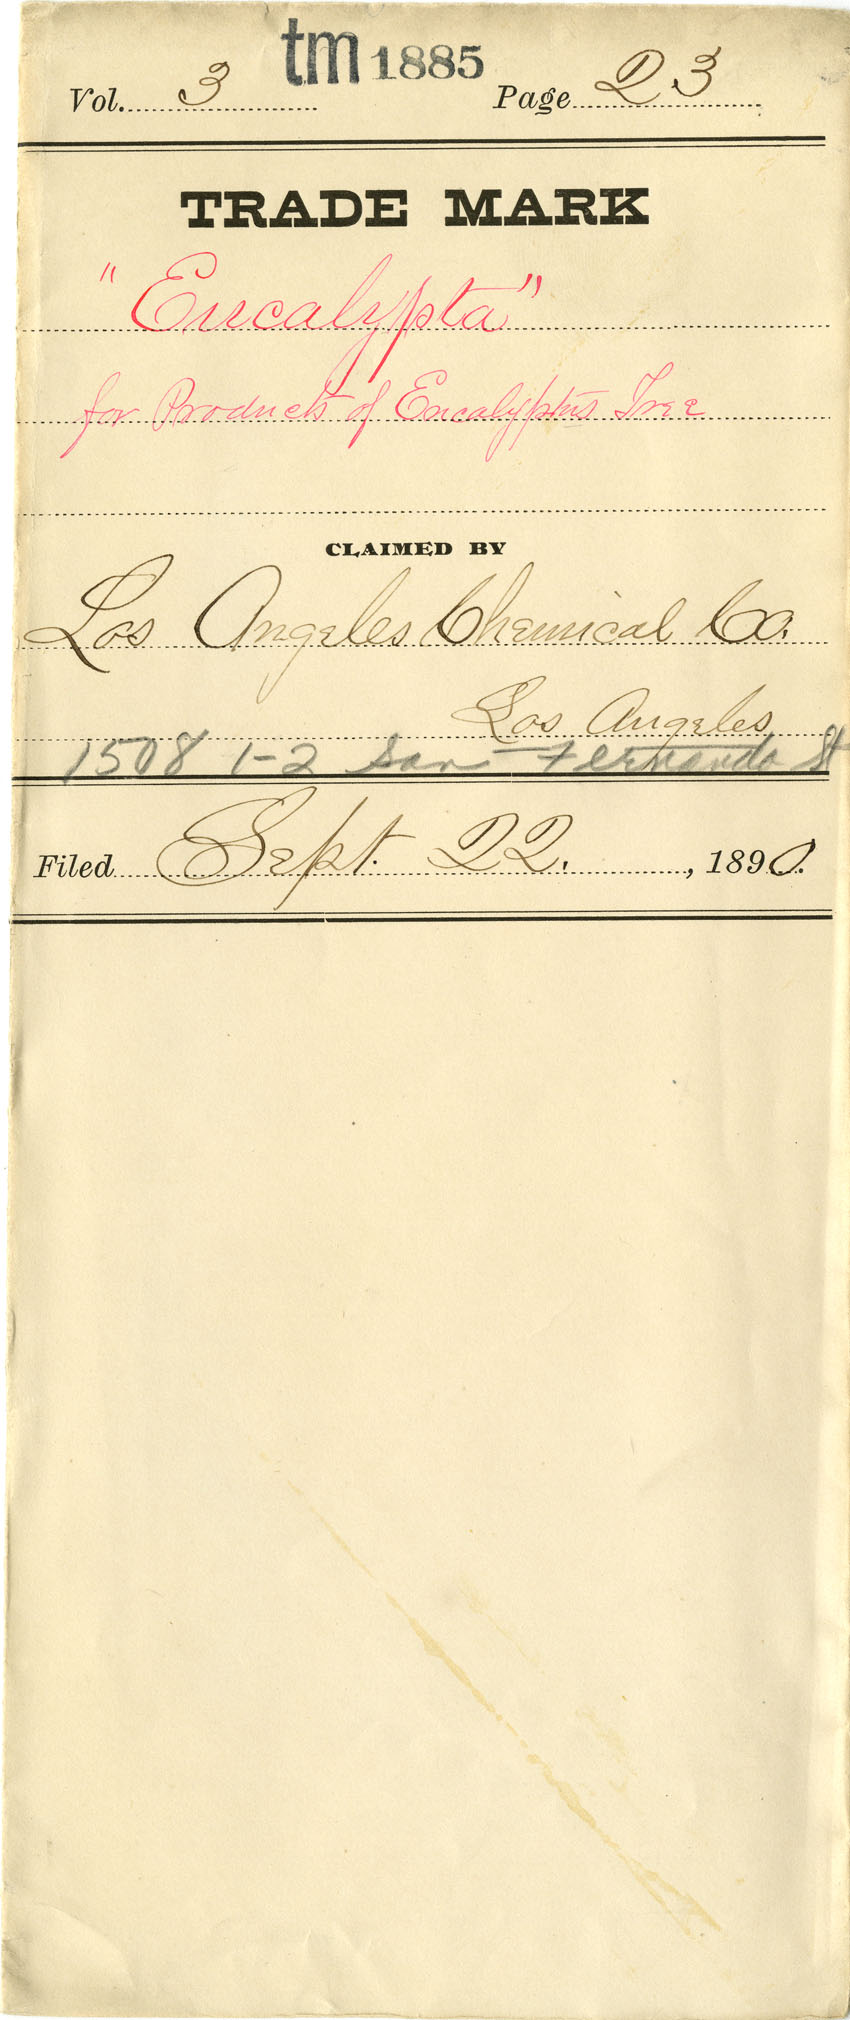 tm 1885
Vol. 3 Page 23
TRADE MARK
"Eucalypta"
for Products of Eucalyptus Tree
CLAIMED BY
Los Angeles Chemical Co.
Los Angeles
1508 1-2 San Fernando St
Filed Sept. 22. , 1890.